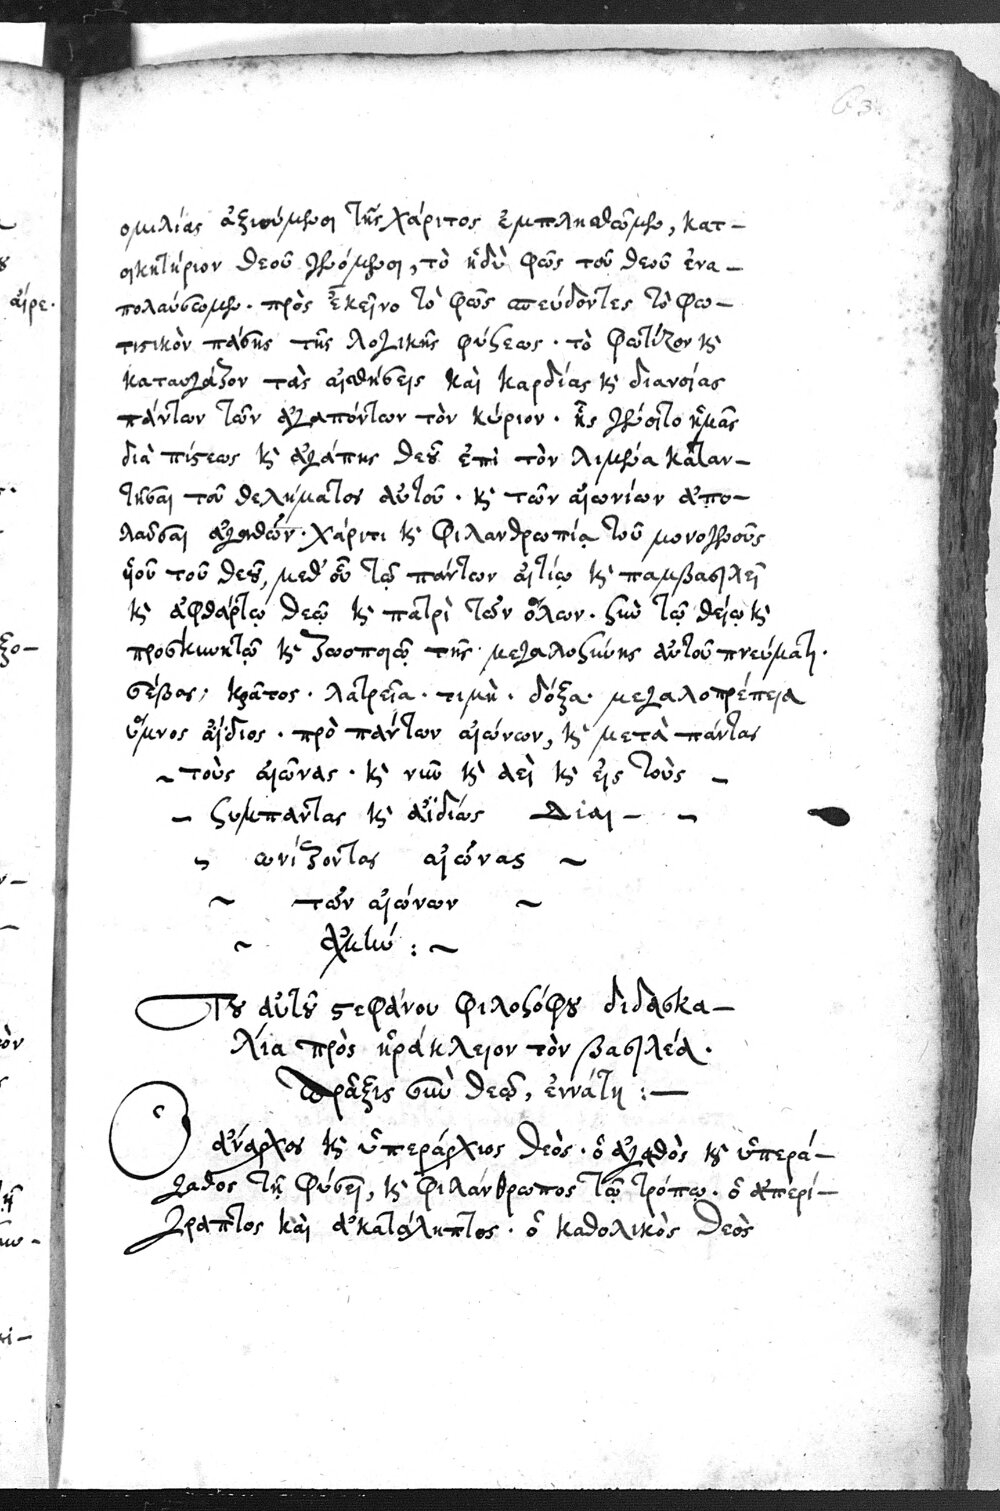 63
ὁμιλίας ἀξιούμενοι τῆς χάριτος ἐμπλησθῶμεν, κατ–
οικητήριον θεοῦ γενόμενοι, τὸ ἡδὺ φῶς τοῦ θεοῦ ἐνα–
πολαύσωμεν. πρὸς ἐκεῖνο τὸ φῶς σπεύδοντες τὸ φω–
τιστικὸν πάσης τῆς λογικῆς φύσεως. τὸ φωτίζον κὶ
καταυγάζον τὰς αἰσθήσεις καὶ καρδίας κὶ διανοίας
πάντων τῶν ἀγαπόντων τὸν κύριον. ἧς γένοιτο ἡμᾶς
διὰ πίστεως κὶ ἀγάπης θεοῦ ἐπὶ τὸν λιμένα καταν–
τῆσαι τοῦ θελήματος αὐτοῦ. κὶ τῶν αἰωνίων ἀπο–
λαῦσαι ἀγαθῶν. χάριτι κὶ φιλανθρωπίᾳ τοῦ μονογενοῦς
υἱοῦ τοῦ θεοῦ, μεθ' οὗ τῷ πάντων αἰτίῳ κὶ παμβασιλεῖ
κὶ ἀφθάρτῳ θεῷ κὶ πατρὶ τῶν ὅλων. σὺν τῷ θείῳ κὶ
προσκυνητῷ κὶ ζωοποιῷ τῆς μεγαλοσύνης αὐτοῦ πνεύματι.
σέβας, κράτος. λατρεῖα. τιμὴ. δόξα. μεγαλοπρέπεια
ὕμνος ἀΐδιος. πρὸ πάντων αἰώνων, κὶ μετὰ πάντας
~ τοὺς αἰῶνας. κὶ νῦν κὶ ἀεὶ κὶ εἰς τοὺς ~
~ σύμπαντας κὶ ἀϊδίως διαι– ~
~ ωνίζοντας αἰώνας ~
~ τῶν αἰώνων ~
~ ἀμήν : ~
Τοῦ αὐτοῦ στεφάνου φιλοσόφου διδασκα–
λία πρὸς ἡράκλειον τὸν βασιλέα.
πρᾶξις σὺν θεῷ, ἐννάτη :—
Ὁ ἀνάρχος κὶ ὑπεράρχιος θεὸς. ὁ ἀγαθὸς κὶ ὑπερά–
γαθος τῇ φύσει, κὶ φιλάνθρωπος τῷ τρόπῳ. ὁ ἀπερί–
γραπτος καὶ ἀκατάληπτος. ὁ καθολικὸς θεὸς